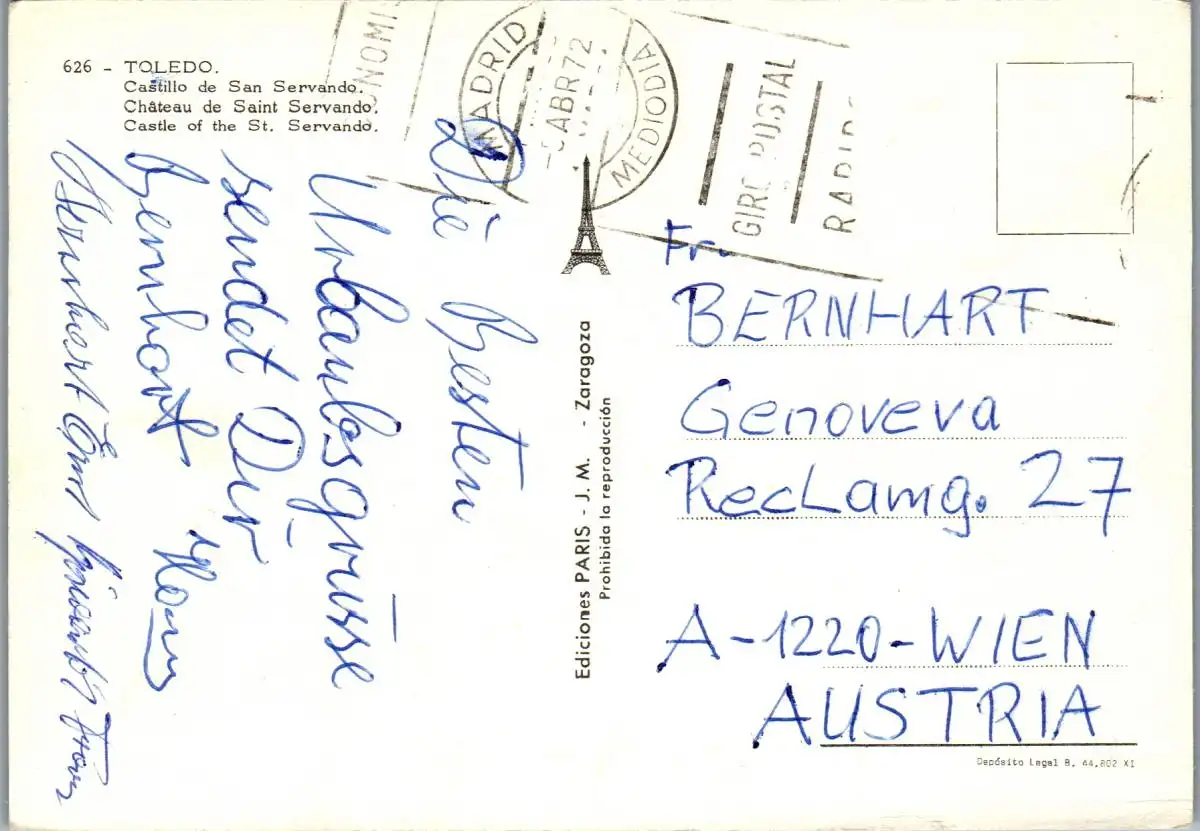 626 - TOLEDO.
Castillo de San Servando.
Château de Saint Servando.
Castle of the St. Servando.
MADRID
ABR 72
MEDIODIA
GIRO POSTAL
Die Besten
Urlaubsgrüsse
sendet Dir
Bernhart Hans
Ediciones PARIS - J. M. - Zaragoza
Prohibida la reproducción
Fr.
BERNHART
Genoveva
RecLamg. 27
A-1220-WIEN
AUSTRIA
Depósito Legal B. 44.802 XI